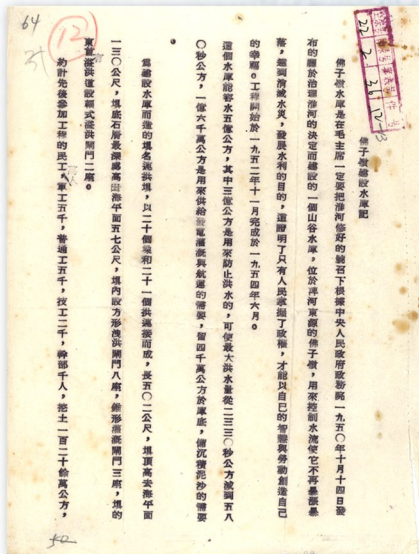 64
12
佛子嶺建設水庫記
佛子嶺水庫是在毛主席一定要把淮河修好的號召下根據中央人民政府政務院一九五〇年十月十四日發
布的關於治理淮河的決定而建設的一個山谷水庫，位於淠河東源的佛子嶺，用來控制水流使它不再暴漲暴
落，達到消滅水災，發展水利的目的，這證明了只有人民掌握了政權，才能以自己的智慧與勞動創造自己
的幸福。工程開始於一九五二年十一月完成於一九五四年六月。
這個水庫能容水五億公方，其中三億公方是用來防止洪水的，可使最大洪水量從二三三〇秒公方減到五八
〇秒公方，一億六千萬公方是用來供給發電灌漑與航運的需要，留四千萬公方於庫底，備沉積泥沙的需要
。
爲建設水庫而造的壩名連拱壩，以二十個垜和二十一個拱連接而成，長五〇二公尺，壩頂高出海平面
一三〇公尺，壩底石層最深處高出海平面五七公尺，壩內設方形洩洪閘門八扇，錐形灌漑閘門三扇，壩的
東首溢洪道設弧式溢洪閘門二扇。
約計先後參加工程的民工，軍工五千，普通工五千，技工二千，幹部千人，挖土一百二十餘萬公方，